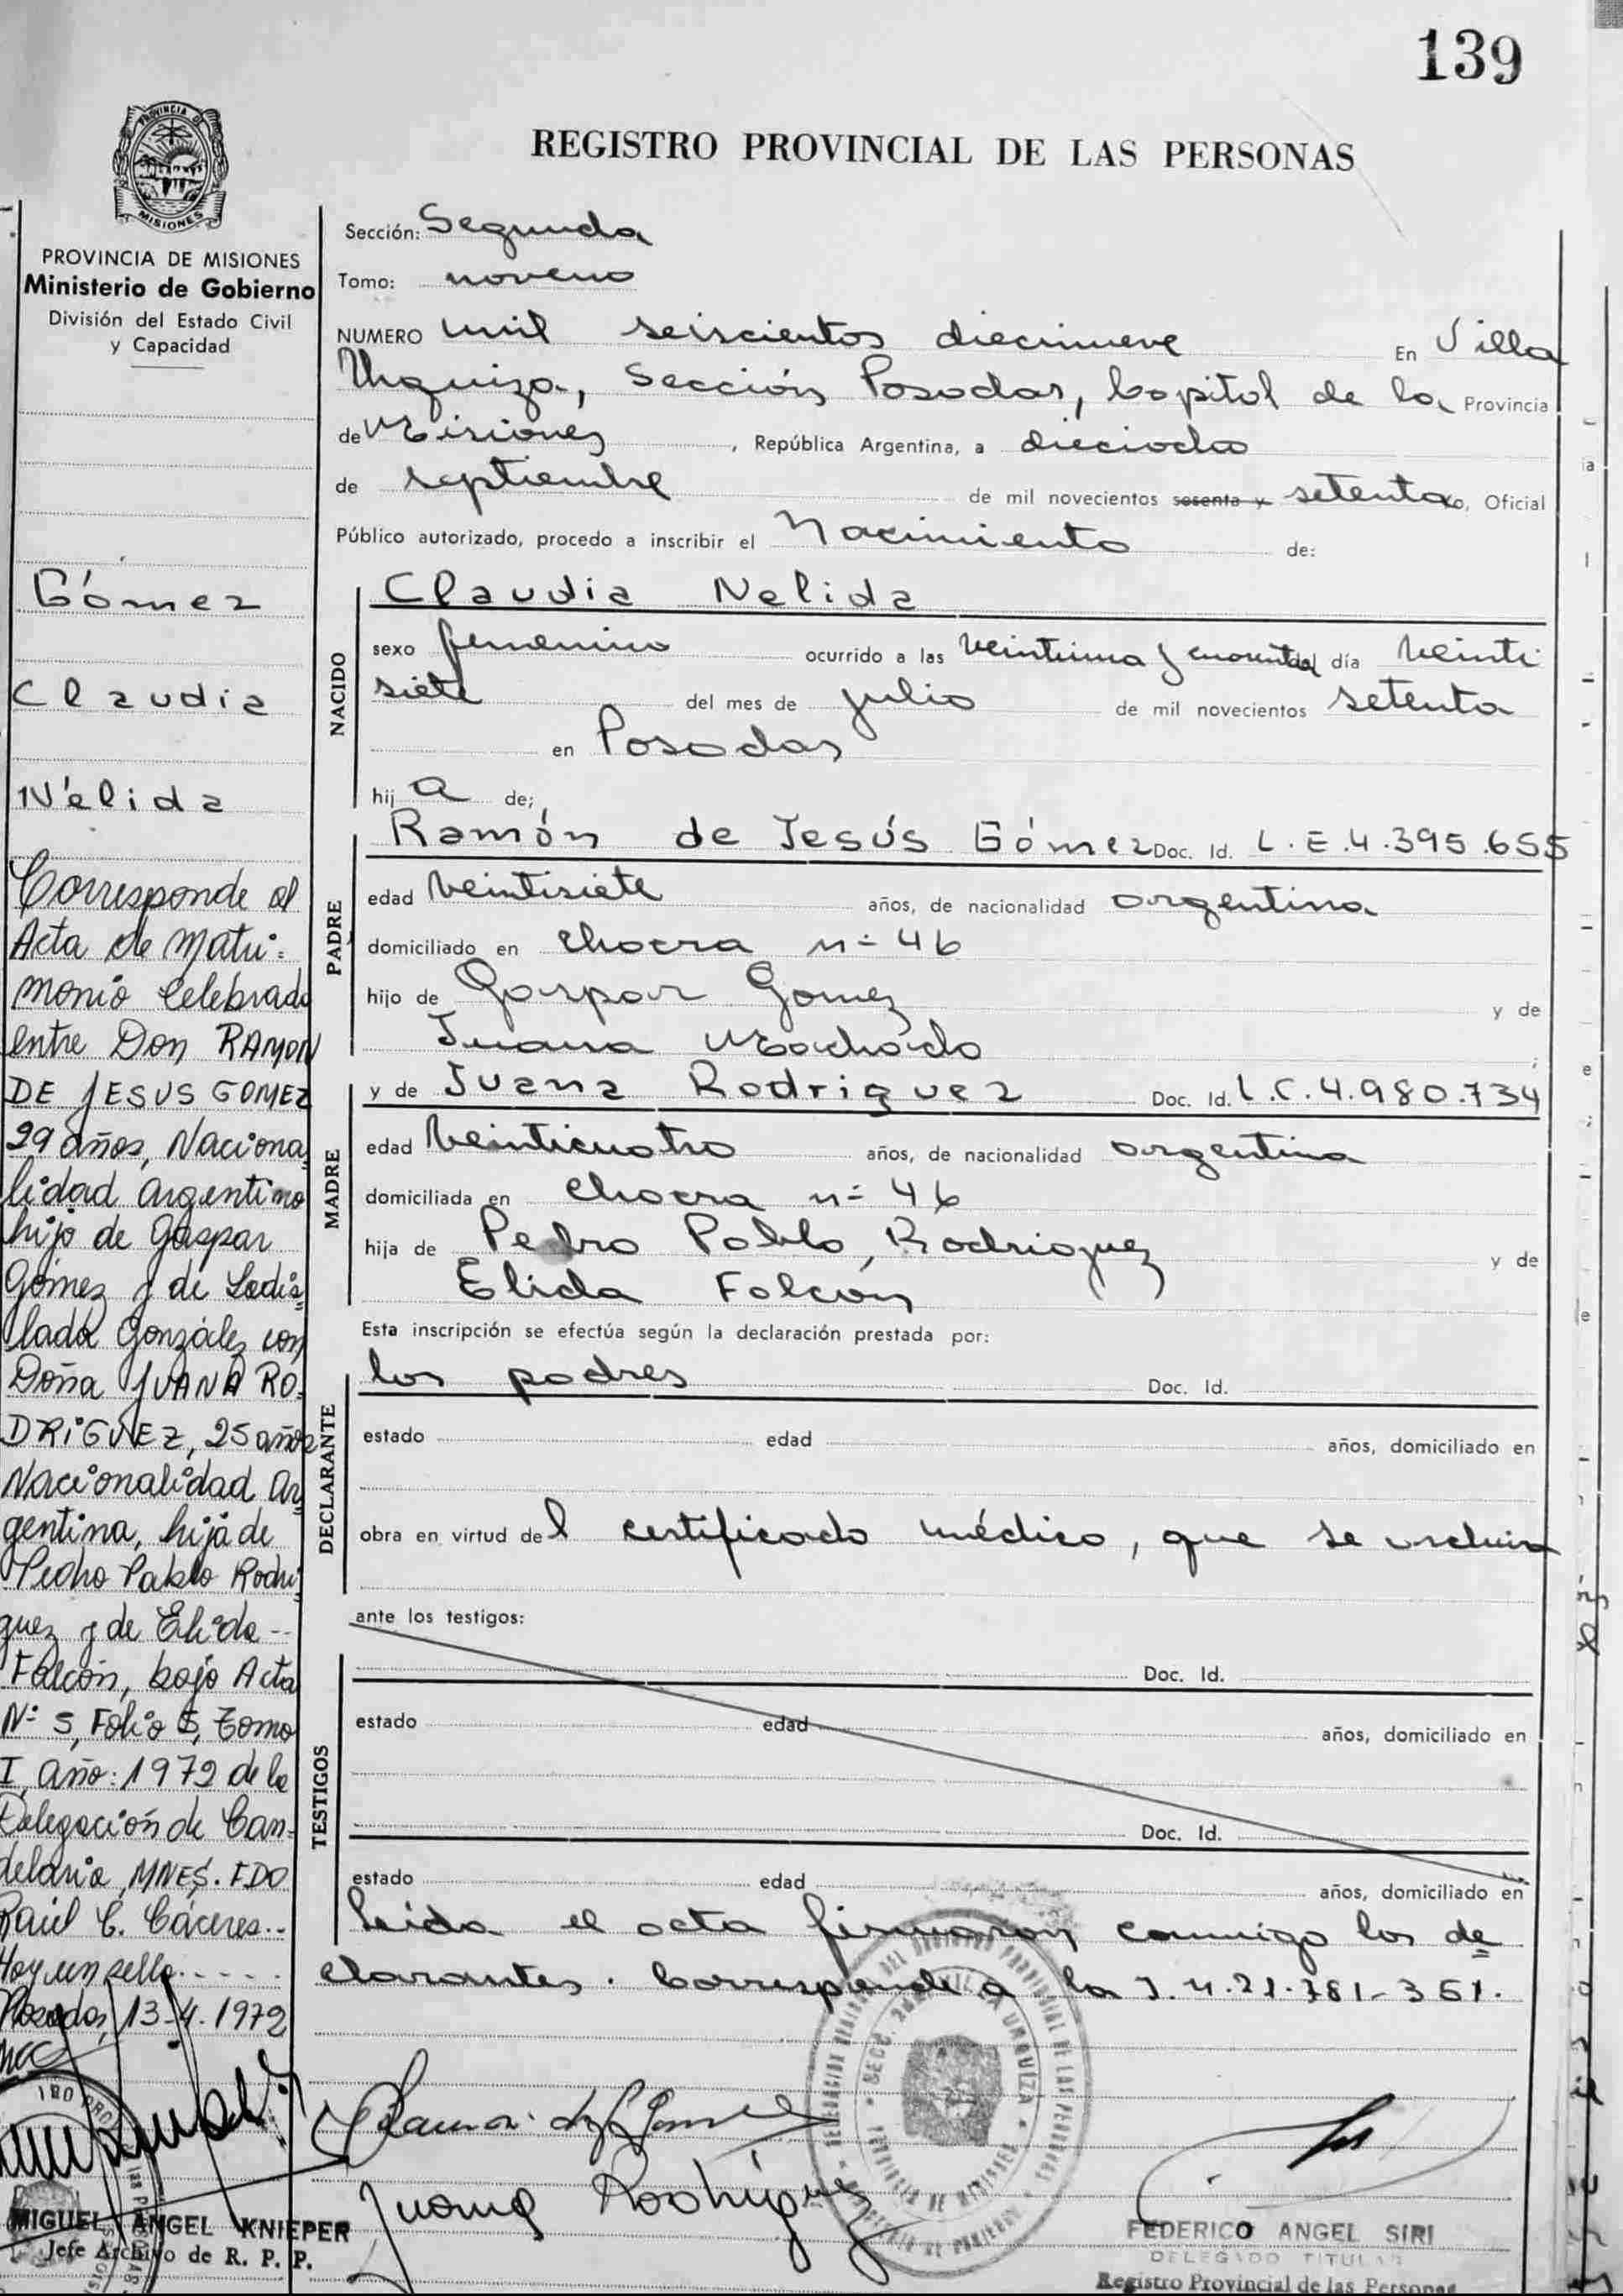 139
REGISTRO PROVINCIAL DE LAS PERSONAS
PROVINCIA DE
MISIONES
PROVINCIA DE MISIONES
Ministerio de Gobierno
División del Estado Civil
y Capacidad
Gómez
Claudia
Nélida
Corresponde al
Acta de Matri=
monio celebrado
entre Don RAMON
DE JESUS GOMEZ
29 años, Naciona
lidad argentino
hijo de Gaspar
Gómez y de Ladis=
lada González con
Doña JUANA RO=
DRIGUEZ, 25 años
Nacionalidad Ar
gentina, hija de
Pedro Pablo Rodrí
guez y de Elida --
Falcón, bajo Acta
Nº 5, Folio 5, Tomo
I, año: 1972 de la
Delegación de Can-
delaria, MNES. FDO
Raúl C. Cáceres.-
Hay un sello. - - - -
Posadas, 13-4-1972
MIGUEL ANGEL KNIEPER
Jefe Archivo de R. P. P.
Sección: Segunda
Tomo: noveno
NUMERO mil seiscientos diecinueve En Villa
Urquiza, Sección Posadas, Capital de la Provincia
de Misiones, República Argentina, a dieciocho
de septiembre de mil novecientos sesenta y setenta, Oficial
Público autorizado, procedo a inscribir el Nacimiento de:
NACIDO
Claudia Nelida
sexo femenino ocurrido a las veintiuna y cuarenta del día veinti
siete del mes de julio de mil novecientos setenta
en Posadas
hij a de;
PADRE
Ramón de Jesús Gómez Doc. Id. L.E.4.395.655
edad veintisiete años, de nacionalidad argentina
domiciliado en chacra nº 46
hijo de Gaspar Gomez y de
Juana Machado ;
MADRE
y de Juana Rodriguez Doc. Id. L.C.4.980.734
edad veinticuatro años, de nacionalidad argentina
domiciliada en chacra nº 46
hija de Pedro Pablo Rodriguez y de
Elida Falcón
Esta inscripción se efectúa según la declaración prestada por:
DECLARANTE
los padres Doc. Id.
estado edad años, domiciliado en
obra en virtud del certificado médico, que se archiva
ante los testigos:
TESTIGOS
Doc. Id.
estado edad años, domiciliado en
Doc. Id.
estado edad años, domiciliado en
leida el acta firmaron conmigo los de=
clarantes. Corresponde a la I.M.21.781-351.
Juana Rodriguez
FEDERICO ANGEL SIRI
DELEGADO TITULAR
Registro Provincial de las Personas